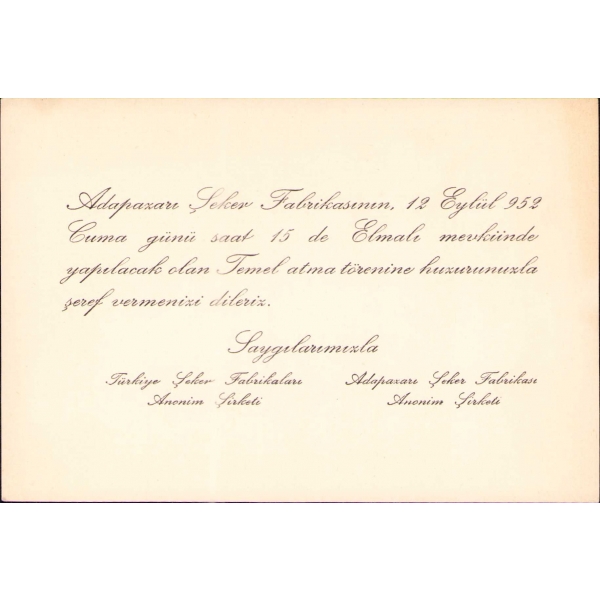 Adapazarı Şeker Fabrikasının, 12 Eylül 952
Cuma günü saat 15 de Elmalı mevkiinde
yapılacak olan Temel atma törenine huzurunuzla
şeref vermenizi dileriz.
Saygılarımızla
Türkiye Şeker Fabrikaları Adapazarı Şeker Fabrikası
Anonim Şirketi Anonim Şirketi